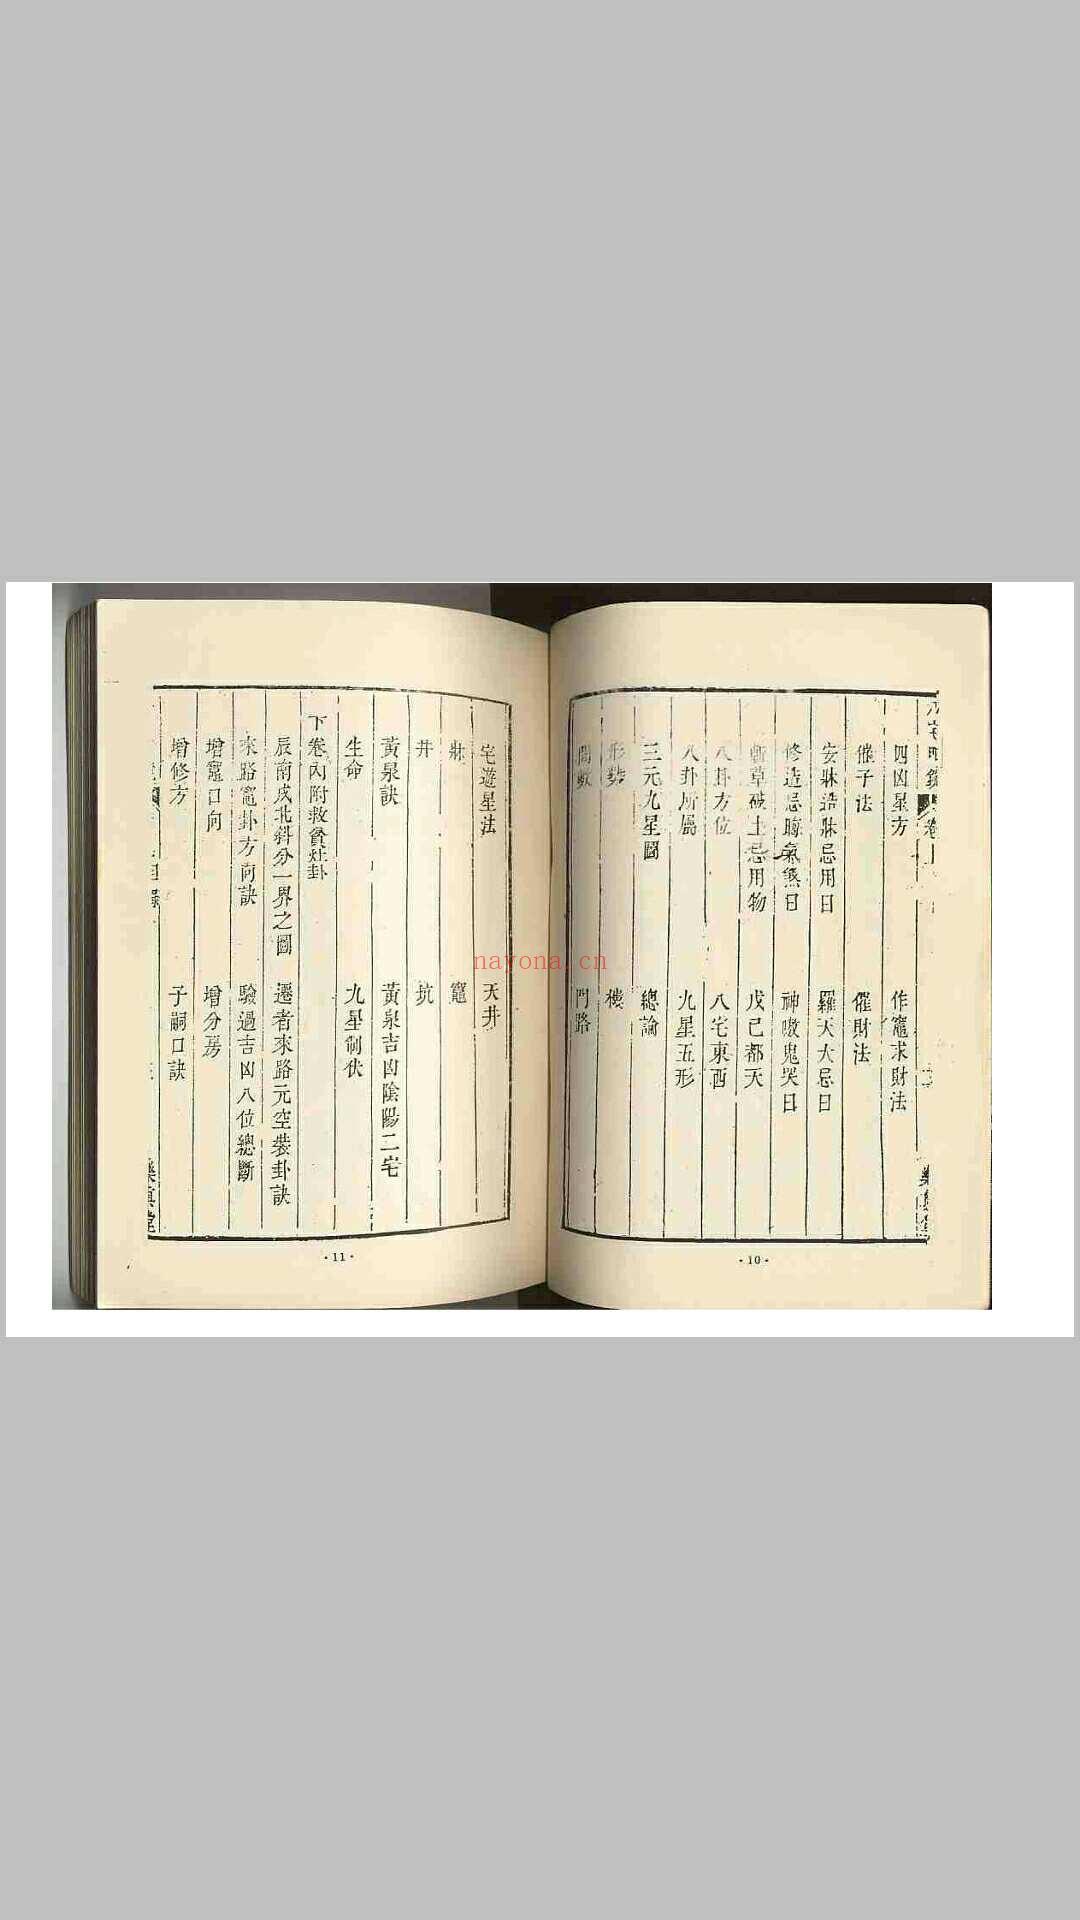 四凶星方
作竈求財法
催子法
催財法
安牀造牀忌用日
羅天大忌日
修造忌晦氣煞日
神嗷鬼哭日
斬草破土忌用物
戊己都天
八卦方位
八宅東西
八卦所屬
九星五形
三元九星圖
總論
形勢
樓
間數
門路
·10·
宅遊星法
天井
牀
竈
井
坑
黃泉訣
黃泉吉凶陰陽二宅
生命
九星制伏
下卷內附救貧灶卦
辰南戌北斜分一界之圖
遷者來路元空裝卦訣
來路竈卦方向訣
驗過吉凶八位總斷
增竈口向
增分房
增修方
子嗣口訣
·11·
nayona.cn